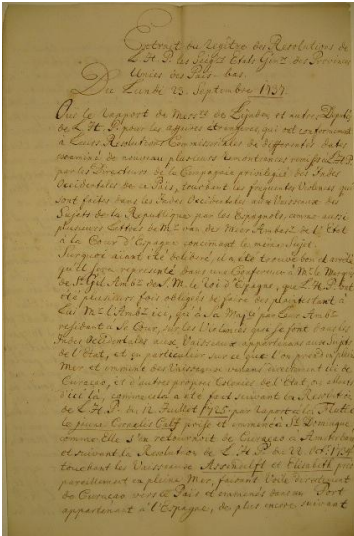 Extract du Regître des Resolutions de
L. H. P. les Seig.rs Etats Gen.x des Provinces
Unies des Païs-bas.
Du Lundi 23. Septembre 1737.
Ouï le rapport de Mess.rs de Lynden et autres Deputés
de L. H. P. pour les affaires étrangeres, qui ont conformément
à leurs Resolutions Commissoriales de differentes dates
examiné de nouveau plusieurs Remontrances à L. H. P.
par les Directeurs de la Compagnie privilegiée des Indes
Occidentales de ce Païs, touchant les frequentes Violences qui
sont faites dans les Indes Occidentales aux Vaisseaux des
Sujets de la Republique par les Espagnols, comme aussi
plusieurs Lettres de Mr. van der Meer Ambass.r de l'Etat
à la Cour d'Espagne concernant le même Sujet.
Surquoi aiant été deliberé, il a été trouvé bon et arrêté
qu'il sera représenté dans une Conference à Mr. le Marquis
de St. Gil Ambr. de S. M. le Roi d'Espagne, que L. H. P. ont
été plusieurs fois obligées de faire des plaintes tant à
lui Mr. l'Ambr. ici, qu'à Sa Maj.té par leur Ambr.
residant à Sa Cour, sur les Violences que se font dans les
Indes Occidentales aux Vaisseaux appartenans aux Sujets
de l'Etat, et en particulier sur ce que l'on prend en pleine
Mer et emmene des Vaisseaux
Curaçao, et d'autres propres Colonies de l'Etat, ou
d'ici là, comme cela a été fait suivant la Resolution
de L. H. P. du 12 Juillet 1725. par rapport à la Flute
le jeune Cornelis Calf prise et emmenée à St. Domingue,
comme Elle s'en retournoit de Curaçao à Amsterdam
et suivant la Resolution de L. H. P. du 22 Oct. 1734
touchant les Vaisseaux Assendelft et Elisabeth pris
pareillement en pleine Mer, faisant Voile directement
de Curaçao vers le Païs et emmenés dans un Port
appartenant à l'Espagne, de plus encore suivant